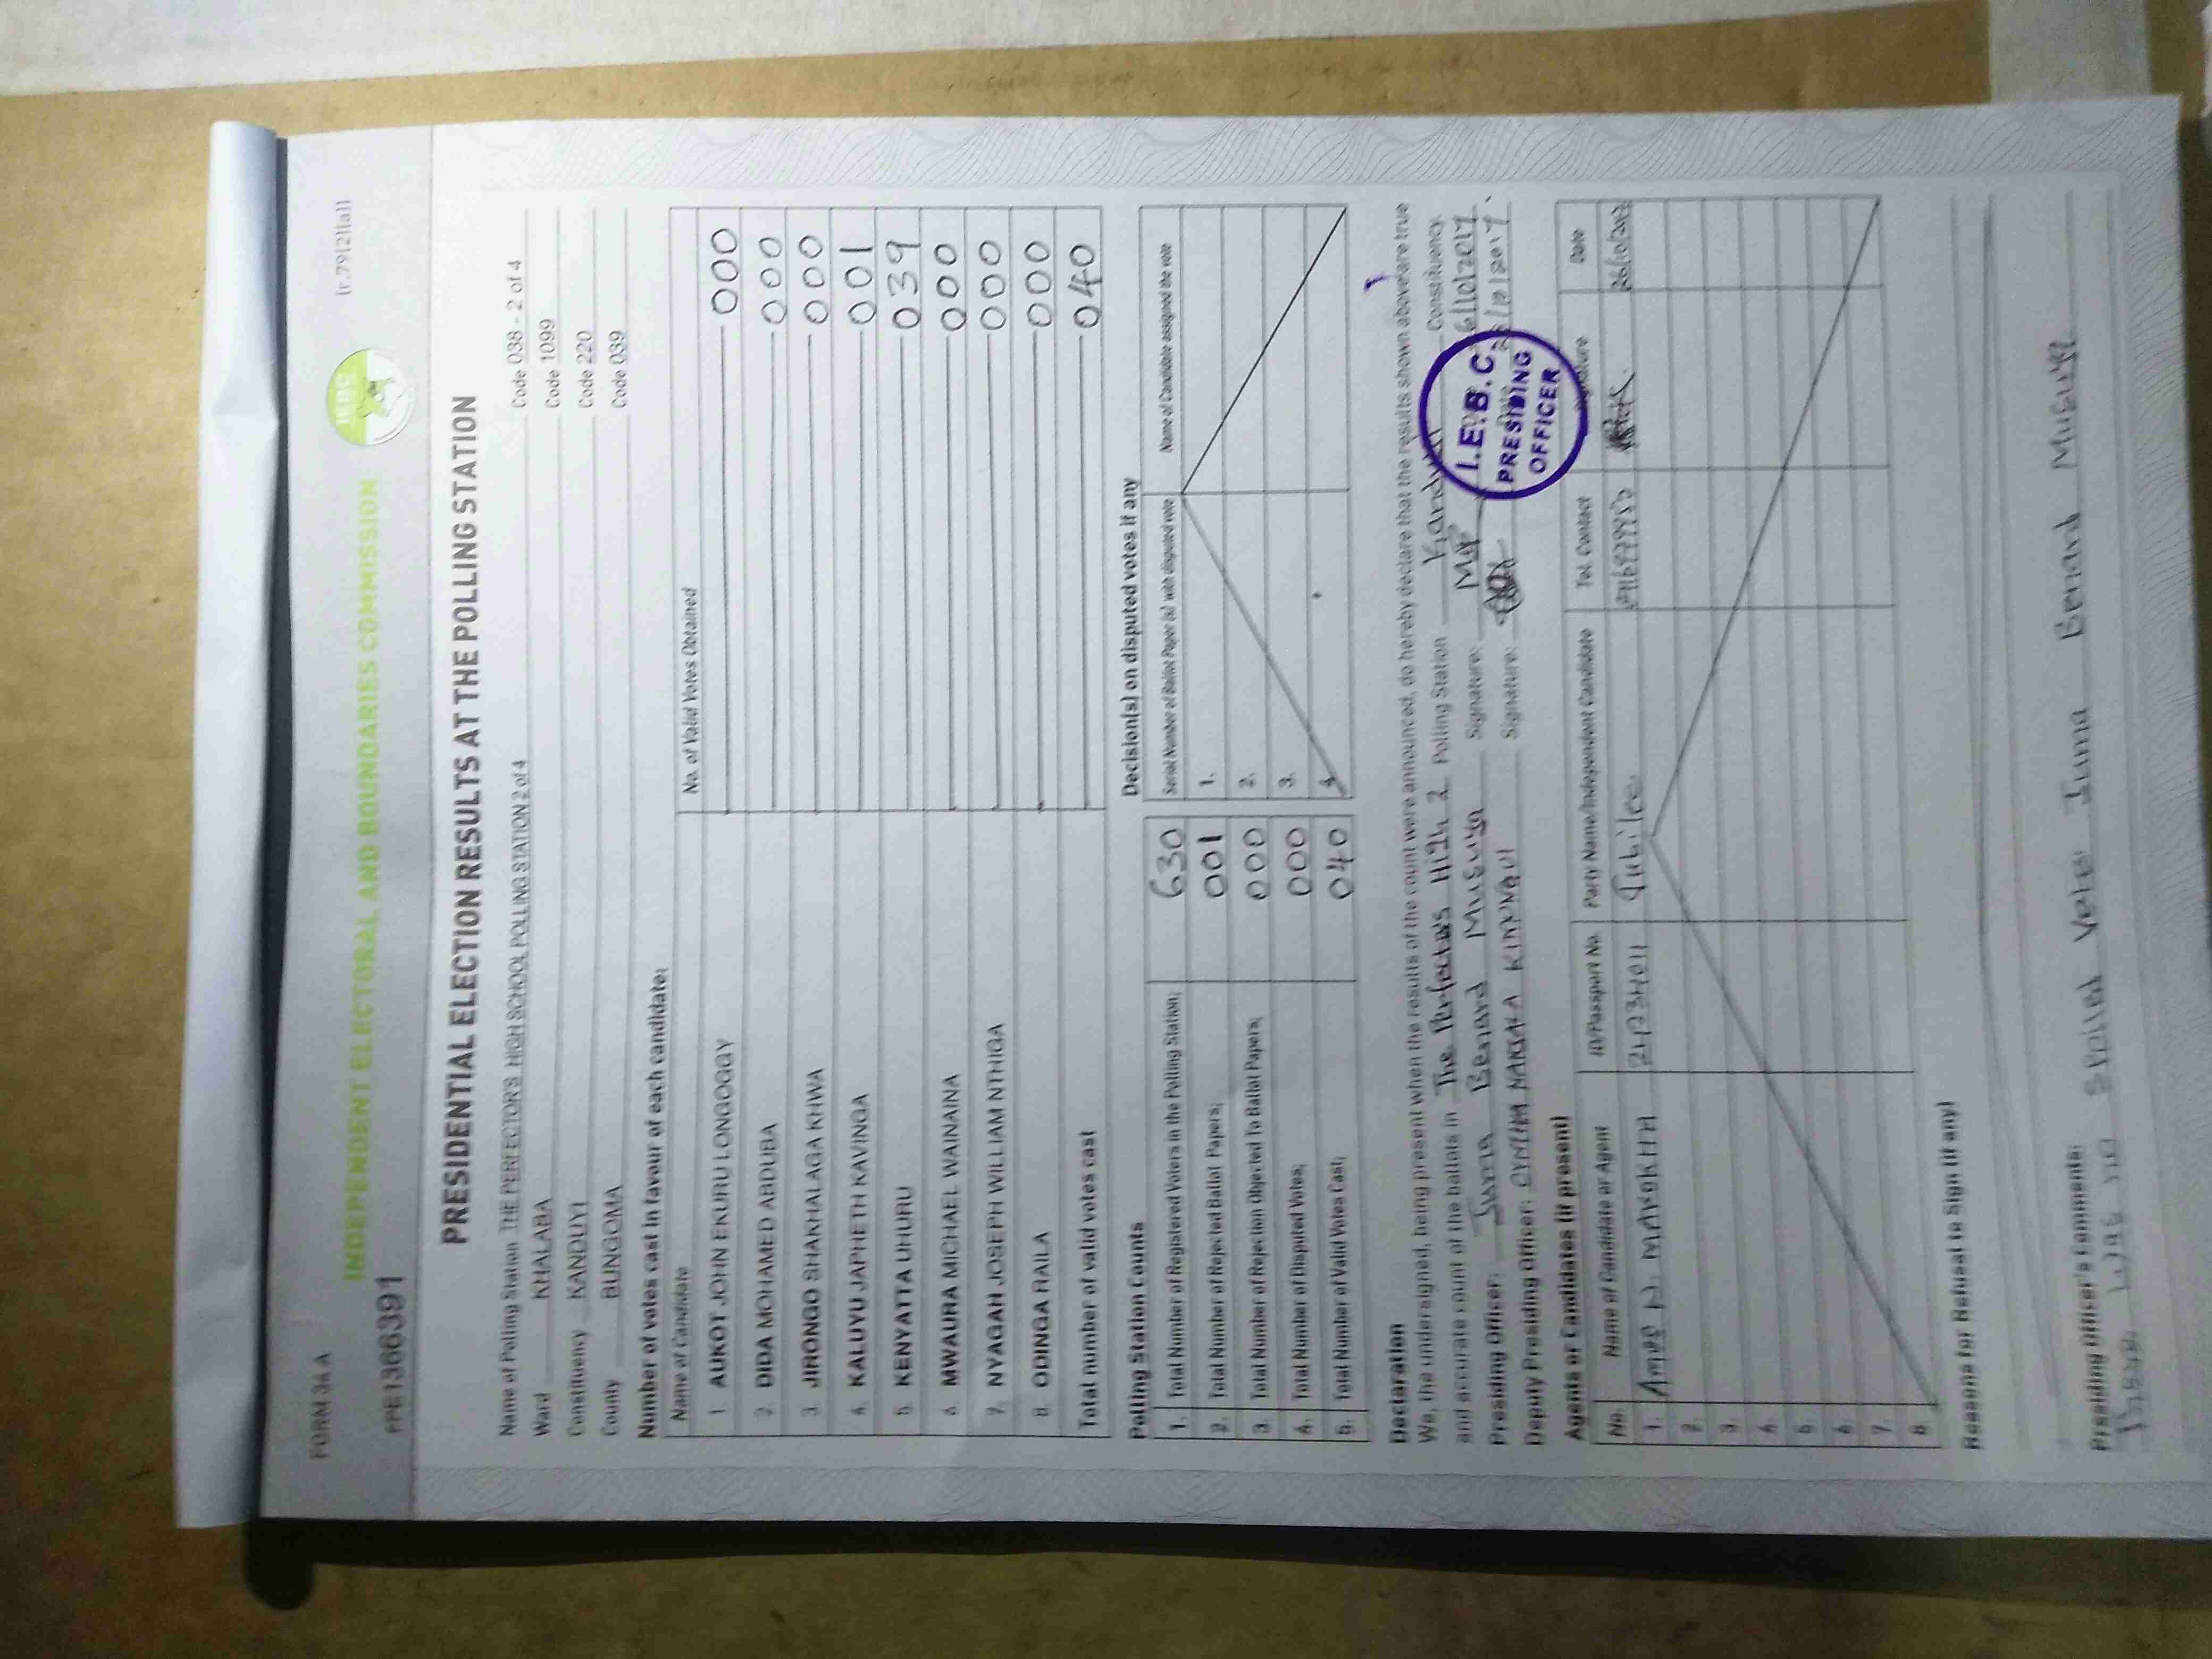 FORM 34A
(r.79(2)(a))
INDEPENDENT ELECTORAL AND BOUNDARIES COMMISSION
IEBC
PRE1366391
PRESIDENTIAL ELECTION RESULTS AT THE POLLING STATION
Name of Polling Station THE PERFECTOR'S HIGH SCHOOL POLLING STATION 2 of 4 Code 038 - 2 of 4
Ward KHALABA Code 1099
Constituency KANDUYI Code 220
County BUNGOMA Code 039
Number of votes cast in favour of each candidate:
Name of Candidate No. of Valid Votes Obtained
1. AUKOT JOHN EKURU LONGOGGY 000
2. DIDA MOHAMED ABDUBA 000
3. JIRONGO SHAKHALAGA KHWA 000
4. KALUYU JAPHETH KAVINGA 001
5. KENYATTA UHURU 039
6. MWAURA MICHAEL WAINAINA 000
7. NYAGAH JOSEPH WILLIAM NTHIGA 000
8. ODINGA RAILA 000
Total number of valid votes cast 040
Polling Station Counts
1. Total Number of Registered Voters in the Polling Station; 630
2. Total Number of Rejected Ballot Papers; 001
3. Total Number of Rejection Objected To Ballot Papers; 000
4. Total Number of Disputed Votes; 000
5. Total Number of Valid Votes Cast; 040
Decision(s) on disputed votes if any
Serial Number of Ballot Paper (s) with disputed vote Name of Candidate assigned the vote
1.
2.
3.
4.
Declaration
We, the undersigned, being present when the results of the count were announced, do hereby declare that the results shown above are true
and accurate count of the ballots in The Perfectors High 2 Polling Station Kanduyi Constituency.
Presiding Officer: Juma Benard Musuya Signature: 26/10/2017
Deputy Presiding Officer: CYNTHIA Signature: 26/10/2017
I.E.B.C.
PRESIDING
OFFICER
Agents or Candidates (if present)
No. Name of Candidate or Agent ID/Passport No. Party Name/Independent Candidate Tel. Contact Signature Date
1. Amos N. MAKOKHA Jubilee 26/10/2017
2.
3.
4.
5.
6.
7.
8.
Reasons for Refusal to Sign (if any)
Presiding Officer's Comments:
There was no spoiled vote. Juma Benard Musuya